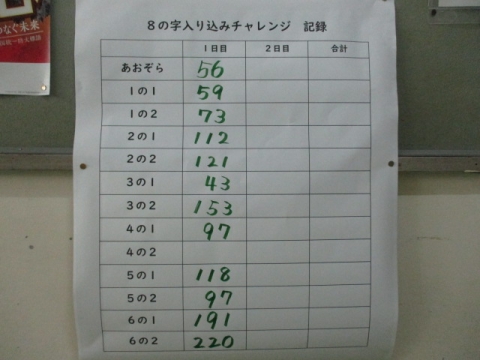 なぐ未来
8の字入り込みチャレンジ 記録
1日目 2日目 合計
あおぞら 56
1の1 59
1の2 73
2の1 112
2の2 121
3の1 43
3の2 153
4の1 97
4の2
5の1 118
5の2 97
6の1 191
6の2 220